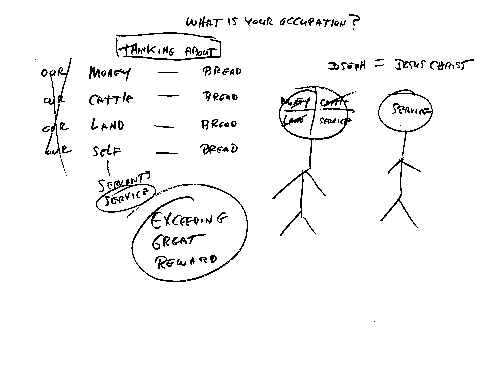 WHAT IS YOUR OCCUPATION?
THINKING ABOUT
JOSEPH = JESUS CHRIST
OUR MONEY — BREAD
OUR CATTLE — BREAD
OUR LAND — BREAD
OUR SELF — BREAD
SERVANTS
SERVICE
EXCEEDING
GREAT
REWARD
MONEY CATTLE
LAND SERVICE
SERVICE